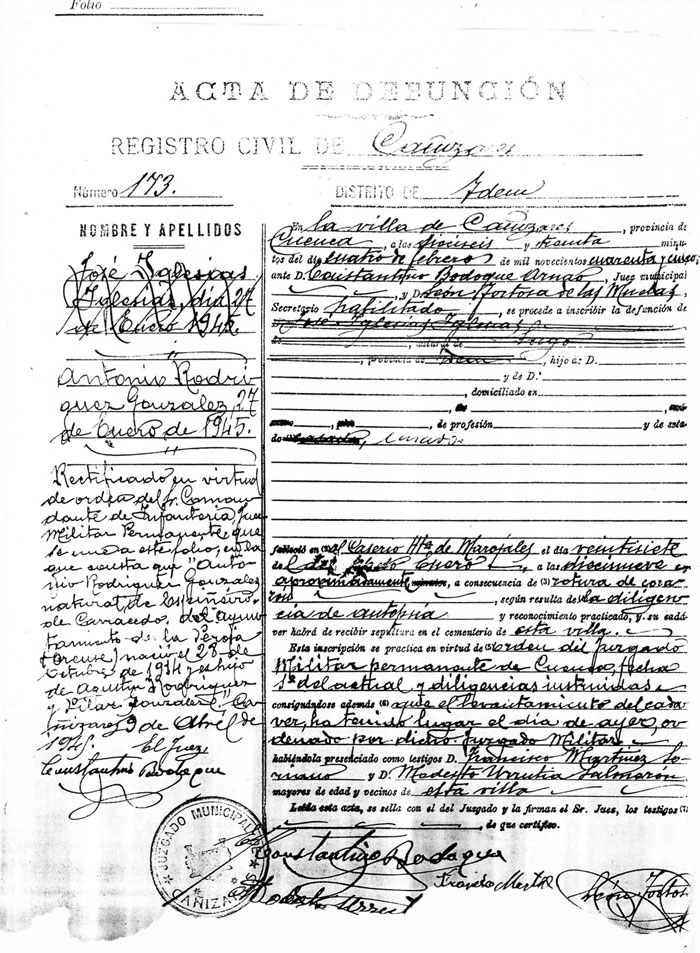 Folio
ACTA DE DEFUNCIÓN
REGISTRO CIVIL DE Cañizares
Número 173.
DISTRITO DE Idem
NOMBRE Y APELLIDOS
José Iglesias
Iglesias, día 27
de Enero 1945.
Antonio Rodrí
guez González, 27
de Enero de 1945.
Rectificado en virtud
de orden del Sr. Coman
dante de Infantería, Juez
Militar Permanente que
se une a este folio, en la
que consta que "Anto-
nio Rodríguez González
natural de
de Carracedo, del ayun
tamiento de la Peroja
(Orense) nació el 28 de
Octubre de 1914 es hijo
de Agustín Rodríguez
y Pilar González. Ca-
ñizares 9 de Abril de
1945.
El Juez
Constantino Bodoque
En la villa de Cañizares, provincia de
Cuenca, a las dieciseis y treinta minu-
tos del día cuatro de febrero de mil novecientos cuarenta y cinco,
ante D. Constantino Bodoque Arnao, Juez municipal
, y D. León Tortosa de las Muelas
Secretario habilitado, se procede a inscribir la defunción de
D. José Iglesias Iglesias
de , natural de Lugo
, provincia de Idem, hijo de D.
y de D.ª
, domiciliado en
, de
, de profesión y de esta-
do
falleció en el Caserío Hta. de Marojales el día veintisiete
de Enero, a las diecinueve
aproximadamente minutos, a consecuencia de (3) rotura de cora-
zón, según resulta de la diligen
cia de autopsia y reconocimiento practicado, y su cadá-
ver habrá de recibir sepultura en el cementerio de esta villa.
Esta inscripción se practica en virtud de orden del Juzgado
Militar permanente de Cuenca, fecha
1º del actual y diligencias instruidas
consignándose además que el levantamiento del cadá
ver, ha tenido lugar el día de ayer, or-
denado por dicho Juzgado Militar
habiéndola presenciado como testigos D. Francisco Martínez So-
riano y D. Modesto Urrutia Salmerón
mayores de edad y vecinos de esta villa
Leída esta acta, se sella con el del Juzgado y la firman el Sr. Juez, los testigos (7)
, de que certifico.
JUZGADO MUNICIPAL
CAÑIZARES
Constantino Bodoque
Modesto Urrut
León Tortosa